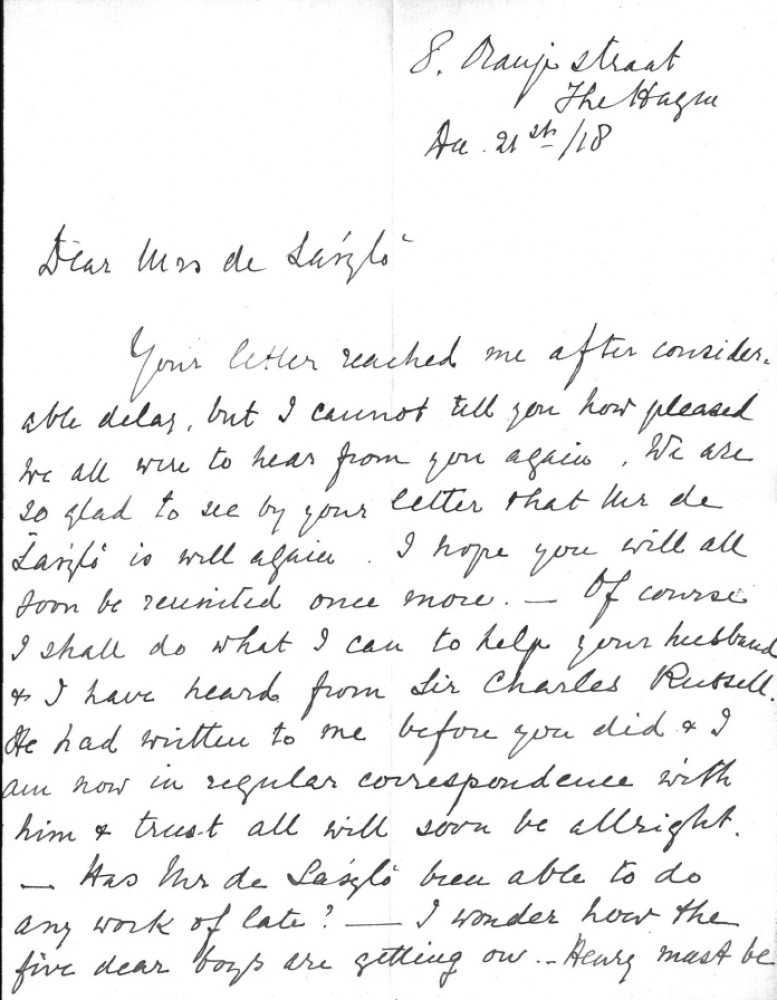 8. Oranje straat
The Hague
Dec. 21st/18
Dear Mrs de László
Your letter reached me after consider-
able delay, but I cannot tell you how pleased
we all were to hear from you again. We are
so glad to see by your letter that Mr de
László is well again. I hope you will all
soon be reunited once more. — Of course
I shall do what I can to help your husband
& I have heard from Sir Charles Russell.
He had written to me before you did & I
am now in regular correspondence with
him & trust all will soon be allright.
— Has Mr de László been able to do
any work of late? — I wonder how the
five dear boys are getting on. — Henry must be